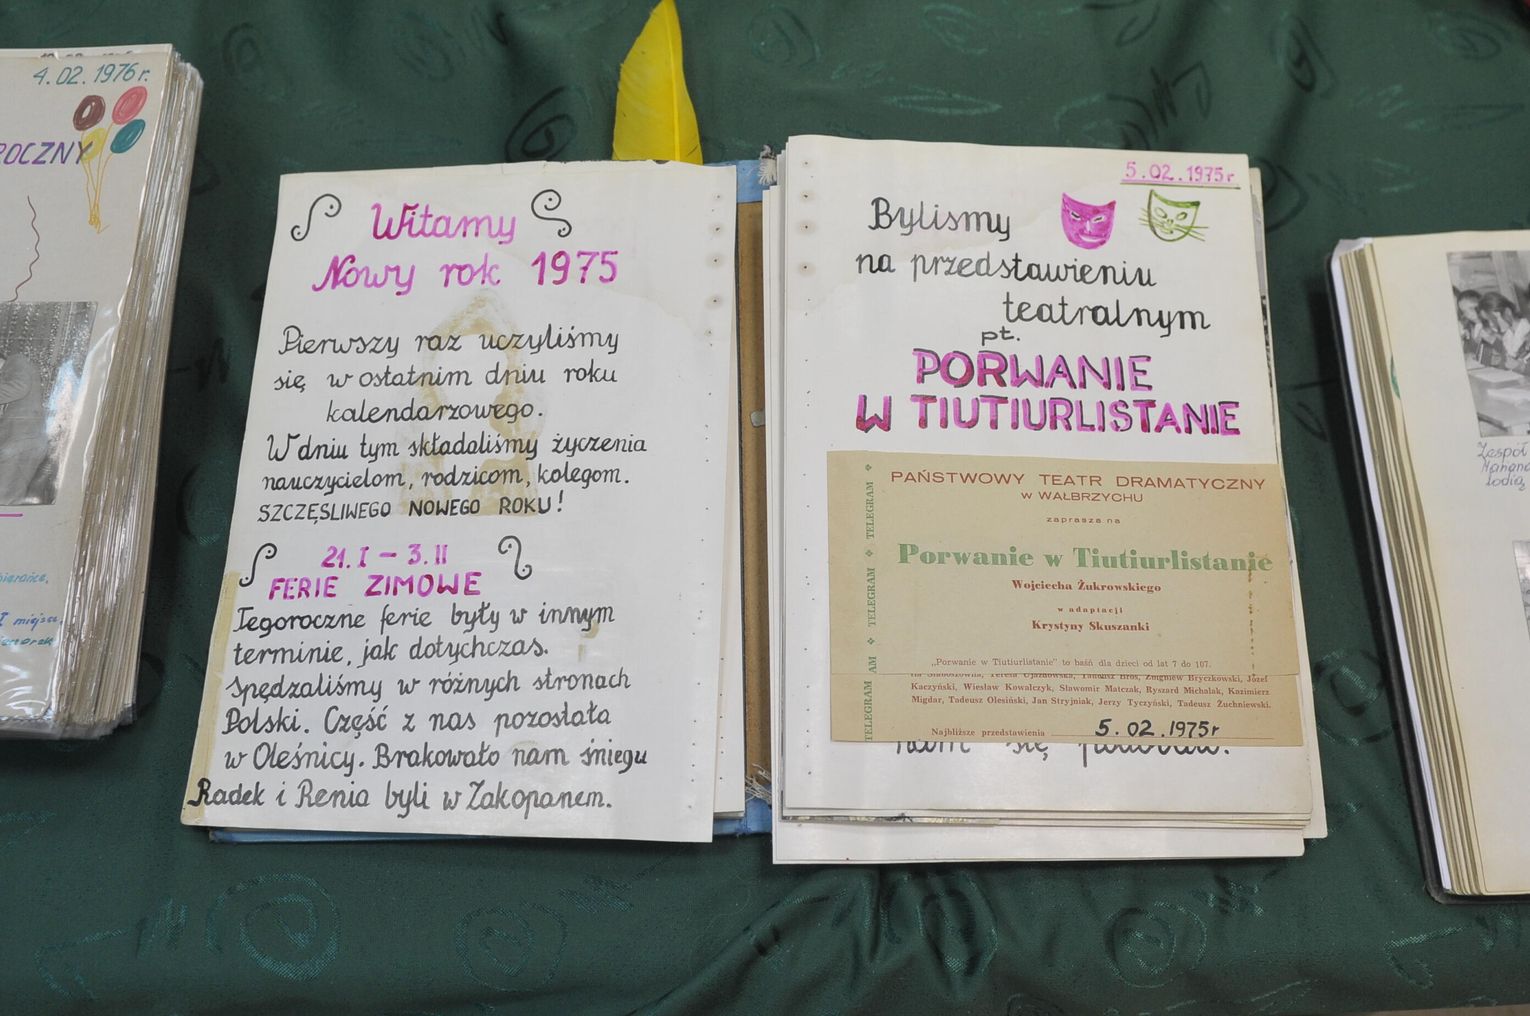 4.02.1976r.
ROCZNY
I miejsce
Witamy
Nowy rok 1975
Pierwszy raz uczyliśmy
się w ostatnim dniu roku
kalendarzowego.
W dniu tym składaliśmy życzenia
nauczycielom, rodzicom, kolegom.
SZCZĘSLIWEGO NOWEGO ROKU!
21.I – 3.II
FERIE ZIMOWE
Tegoroczne ferie były w innym
terminie, jak dotychczas.
Spędzaliśmy w różnych stronach
Polski. Część z nas pozostała
w Oleśnicy. Brakowało nam śniegu
Radek i Renia byli w Zakopanem.
5.02.1975r.
Bylismy
na przedstawieniu
teatralnym
pt.
PORWANIE
W TIUTIURLISTANIE
PAŃSTWOWY TEATR DRAMATYCZNY
W WAŁBRZYCHU
zaprasza na
Porwanie w Tiutiurlistanie
Wojciecha Żukrowskiego
w adaptacji
Krystyny Skuszanki
„Porwanie w Tiutiurlistanie" to baśń dla dzieci od lat 7 do 107.
Teresa Ujazdowska, Tadeusz Bros, Zbigniew Bryczkowski, Józef
Kaczyński, Wiesław Kowalczyk, Sławomir Matczak, Ryszard Michalak, Kazimierz
Migdar, Tadeusz Olesiński, Jan Stryjniak, Jerzy Tyczyński, Tadeusz Żuchniewski.
Najbliższe przedstawienia 5.02.1975r
TELEGRAM ❖ TELEGRAM ❖ TELEGRAM ❖
TELEGRAM
nam się
Zespół